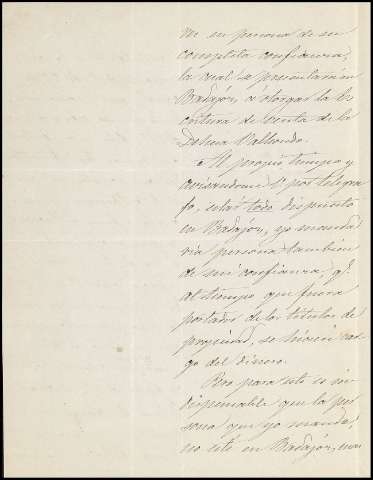 me en persona de su
completa confianza,
la cual se presentará en
Badajóz, á otorgar la Es
critura de venta de la
Dehesa Valhondo.
Al propio tiempo y
avisandome V. por telegra
fo, estar todo dispuesto
en Badajóz, yo manda
ria persona tambien
de mi confianza, qe.
al tiempo que fuera
portador de los titulos de
propiedad, se hiciera car
go del dinero.
Pero para esto es in
dispensable que la per
sona que yo mande,
no esté en Badajóz, mas